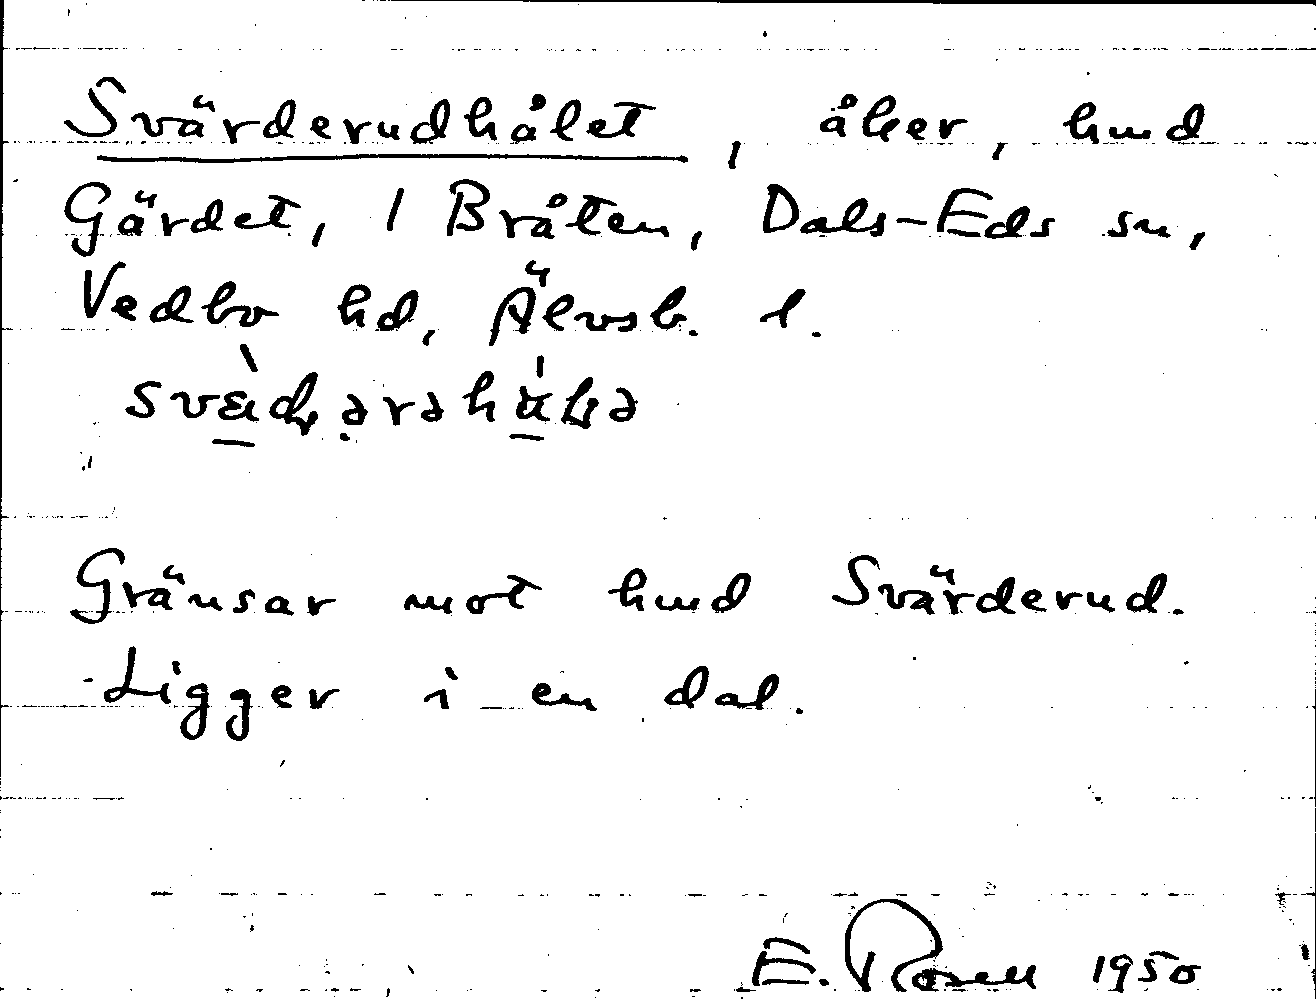 Svärderudhålet, åker, hmd
Gärdet, 1 Bråten, Dals-Eds sn,
Vedbo hd, Älvsb. l.
Gränsar mot hmd Svärderud.
Ligger i en dal.
E. Rosell 1950